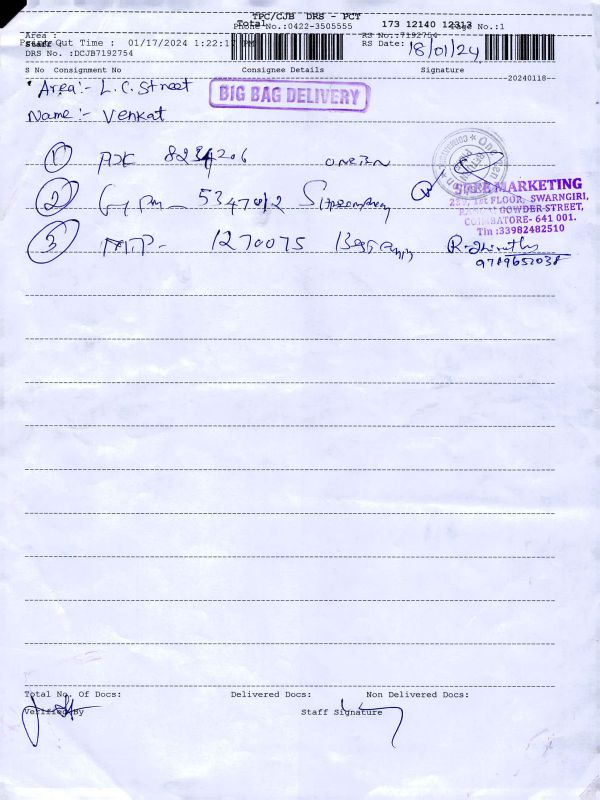 TPC/CJB DRS - PCT
Total 173 12140 12313
Phone No.:0422-3505555 Page No.:1
Area : RS No.:7192754
Staff
Print Out Time : 01/17/2024 1:22:1 PM RS Date: 18/01/24
DRS No. :DCJB7192754
S No Consignment No Consignee Details Signature
20240118
Area:- L.C. Street
BIG BAG DELIVERY
Name:- Venkat
1 8234206
2 5347012
SHREE MARKETING
1st FLOOR, SWARNGIRI,
GOWDER STREET,
COIMBATORE- 641 001.
Tin :33982482510
3 1270075
Total No. Of Docs: Delivered Docs: Non Delivered Docs:
Verified By Staff Signature